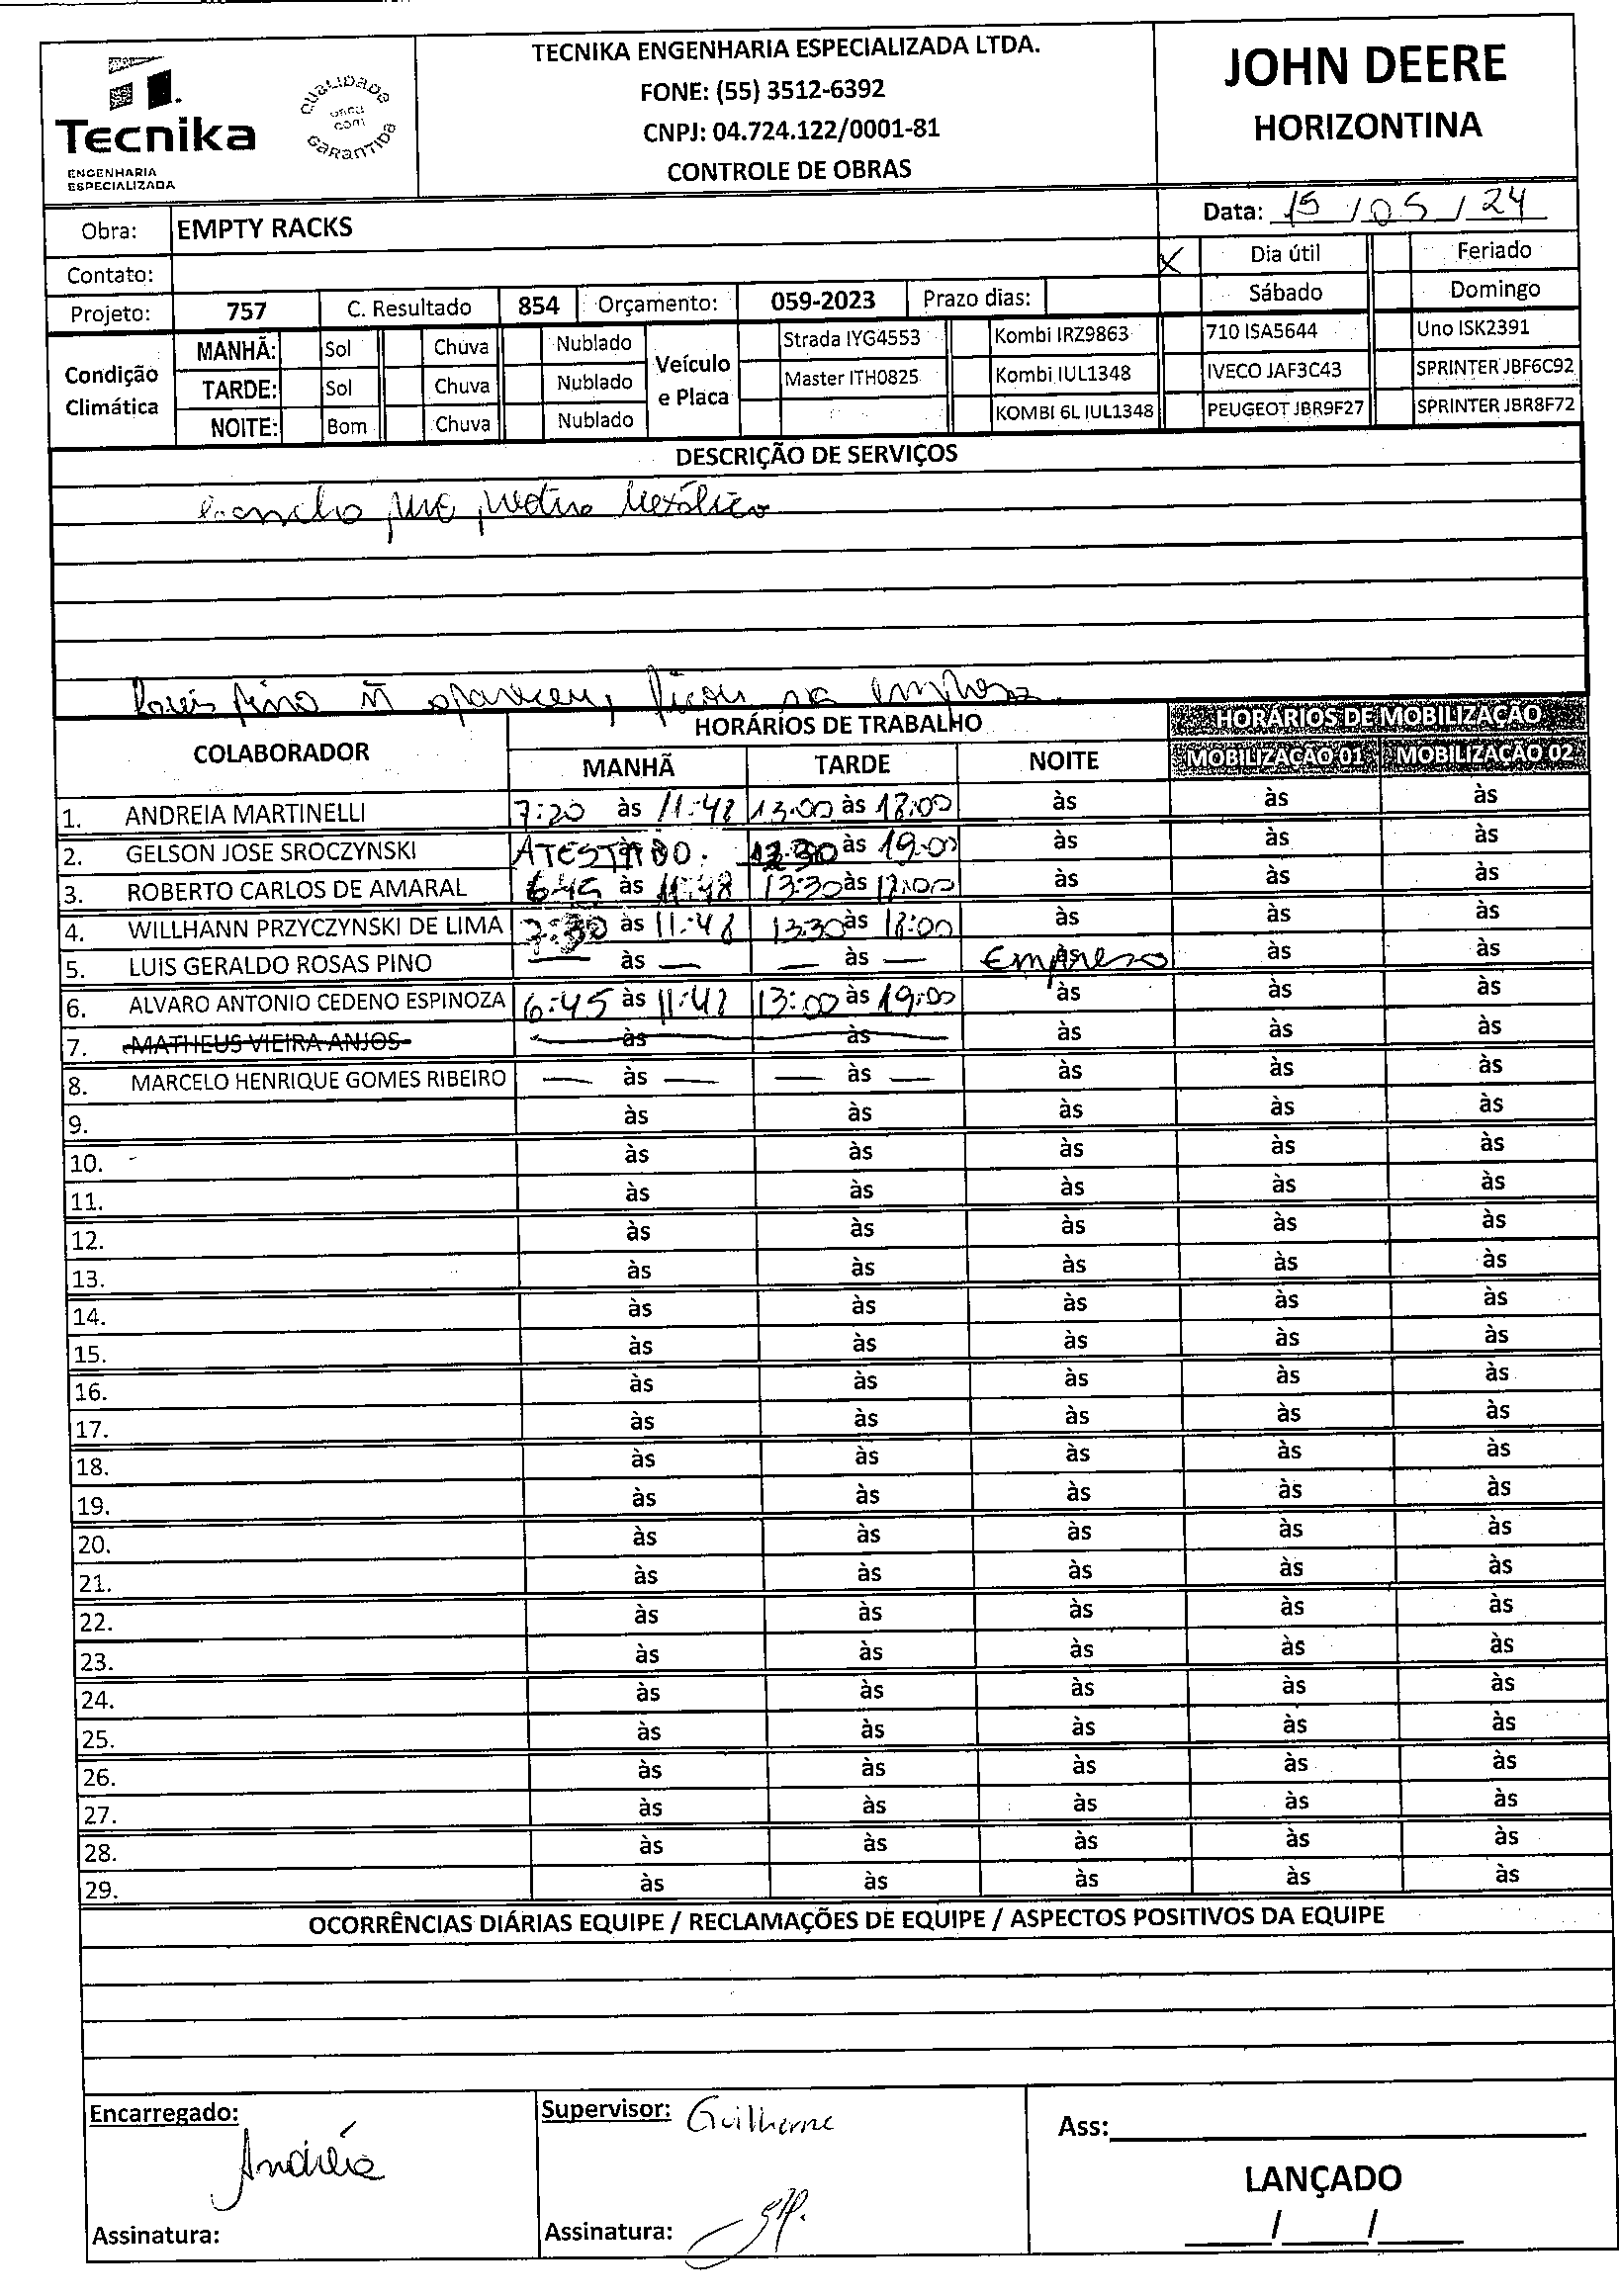 Tecnika
ENGENHARIA
ESPECIALIZADA
QUALIDADE
com
GARANTIDA
TECNIKA ENGENHARIA ESPECIALIZADA LTDA.
FONE: (55) 3512-6392
CNPJ: 04.724.122/0001-81
CONTROLE DE OBRAS
JOHN DEERE
HORIZONTINA
Obra: EMPTY RACKS
Data: 15 / 05 / 24
Contato:
X Dia útil Feriado
Projeto: 757 C. Resultado 854 Orçamento: 059-2023 Prazo dias:
Sábado Domingo
Condição Climática
MANHÃ: Sol Chuva Nublado
TARDE: Sol Chuva Nublado
NOITE: Bom Chuva Nublado
Veículo e Placa
Strada IYG4553 Kombi IRZ9863 710 ISA5644 Uno ISK2391
Master ITH0825 Kombi IUL1348 IVECO JAF3C43 SPRINTER JBF6C92
KOMBI 6L IUL1348 PEUGEOT JBR9F27 SPRINTER JBR8F72
DESCRIÇÃO DE SERVIÇOS
pino ñ apareceu, ficou na empresa
COLABORADOR
HORÁRIOS DE TRABALHO
HORÁRIOS DE MOBILIZAÇÃO
MANHÃ TARDE NOITE MOBILIZAÇÃO 01 MOBILIZAÇÃO 02
1. ANDREIA MARTINELLI 7:20 às 11:48 13:00 às 18:00 às às às
2. GELSON JOSE SROCZYNSKI ATESTADO. às 19:00 às às às
3. ROBERTO CARLOS DE AMARAL 6:45 às 11:48 13:30 às 17:00 às às às
4. WILLHANN PRZYCZYNSKI DE LIMA 7:30 às 11:48 13:30 às 18:00 às às às
5. LUIS GERALDO ROSAS PINO — às — — às — Empresa às às às
6. ALVARO ANTONIO CEDENO ESPINOZA 6:45 às 11:48 13:00 às 19:00 às às às
7. MATHEUS VIEIRA ANJOS às às às às às
8. MARCELO HENRIQUE GOMES RIBEIRO — às — — às — às às às
9. às às às às às
10. às às às às às
11. às às às às às
12. às às às às às
13. às às às às às
14. às às às às às
15. às às às às às
16. às às às às às
17. às às às às às
18. às às às às às
19. às às às às às
20. às às às às às
21. às às às às às
22. às às às às às
23. às às às às às
24. às às às às às
25. às às às às às
26. às às às às às
27. às às às às às
28. às às às às às
29. às às às às às
OCORRÊNCIAS DIÁRIAS EQUIPE / RECLAMAÇÕES DE EQUIPE / ASPECTOS POSITIVOS DA EQUIPE
Encarregado:
Andréia
Assinatura:
Supervisor: Guilherme
Assinatura:
Ass:
LANÇADO
/ /